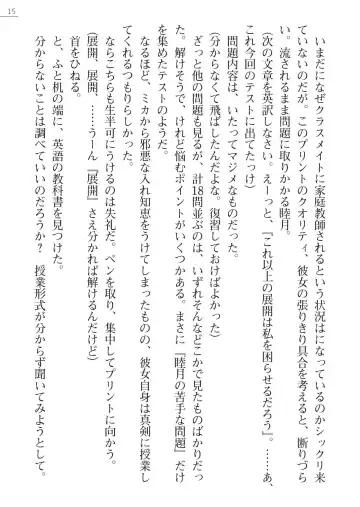 15
いまだになぜクラスメイトに家庭教師されるという状況はになっているのかシックリ来
ていないのだが、このプリントのクオリティ、彼女の張りきり具合を考えると、断りづら
い。流されるまま問題に取りかかる睦月。
（次の文章を英訳しなさい。えーっと、『これ以上の展開は私を困らせるだろう』。……あ、
これ今回のテストに出てたっけ）
問題内容は、いたってマジメなものだった。
（分からなくて飛ばしたんだよな。復習しておけばよかった）
ざっと他の問題も見るが、計18問並ぶのは、いずれそんなどこかで見たものばかりだっ
た。解けそうで、けれど悩むポイントがいくつかある。まさに『睦月の苦手な問題』だけ
を集めたテストのようだ。
なるほど、ミカから邪悪な入れ知恵をされてしまったものの、彼女自身は真剣に授業し
てくれるつもりらしかった。
ならこちらも生半可にうけるのは失礼だ。ペンを取り、集中してプリントに向かう。
（展開、展開、……うーん『展開』さえ分かれば解けるんだけど）
首をひねる。
と、ふと机の端に、英語の教科書を見つけた。
分からないことは調べていいのだろうか？　授業形式が分からず聞いてみようとして、